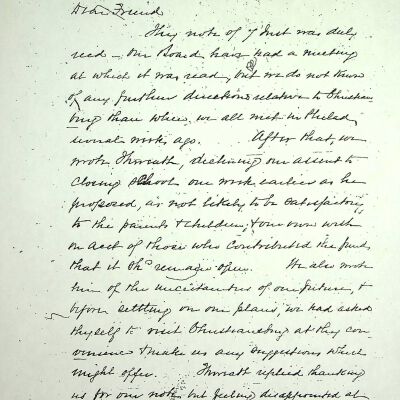 Dear Friend
Thy note of 7 Inst was duly
recd – our Board have had a meeting
at which it was read, but we do not know
of any further directions relative to Christians
burg than when we all met in Philad
several weeks ago. After that, we
wrote Thos, declining our assent to
closing School one week earlier as he
proposed, as not likely to be satisfactory
to the parents & children, & our own wish
on acct of those who contributed the funds,
that it shd remain open. We also wrote
him of the uncertainties of our future, &
before settling on our plans, we had asked
thyself to visit Christiansburg at thy con
venience & make us any suggestions which
might offer. replied thanking
us for our note but feeling disappointed at